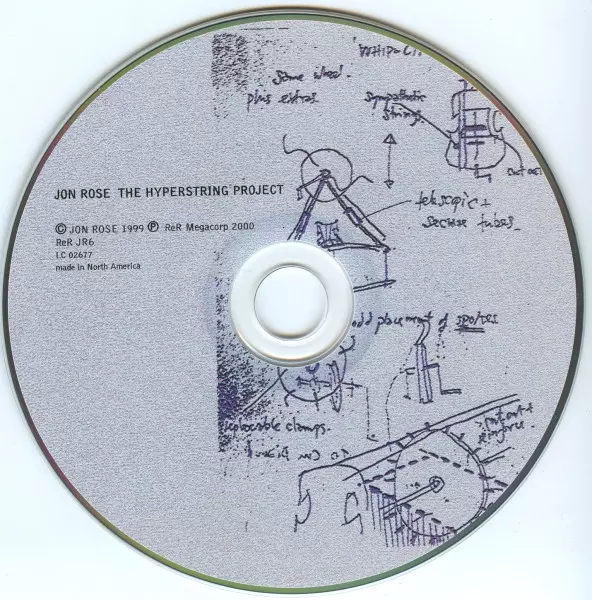 'WHIP-
Same wheel.
plus extras
sympathetic
strings
JON ROSE THE HYPERSTRING PROJECT
telescopic +
secure tubes
© JON ROSE 1999 ℗ ReR Megacorp 2000
ReR JR6
LC 02677
made in North America
odd placement of spokes
clamps.